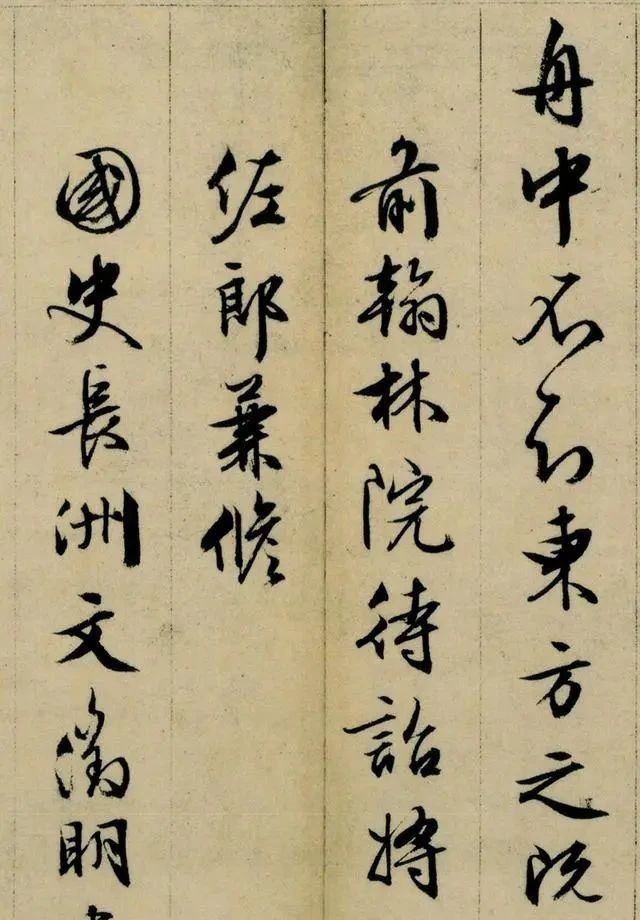 舟中不知東方之既
前翰林院待詔將
佐郎兼脩
國史長洲文徵明